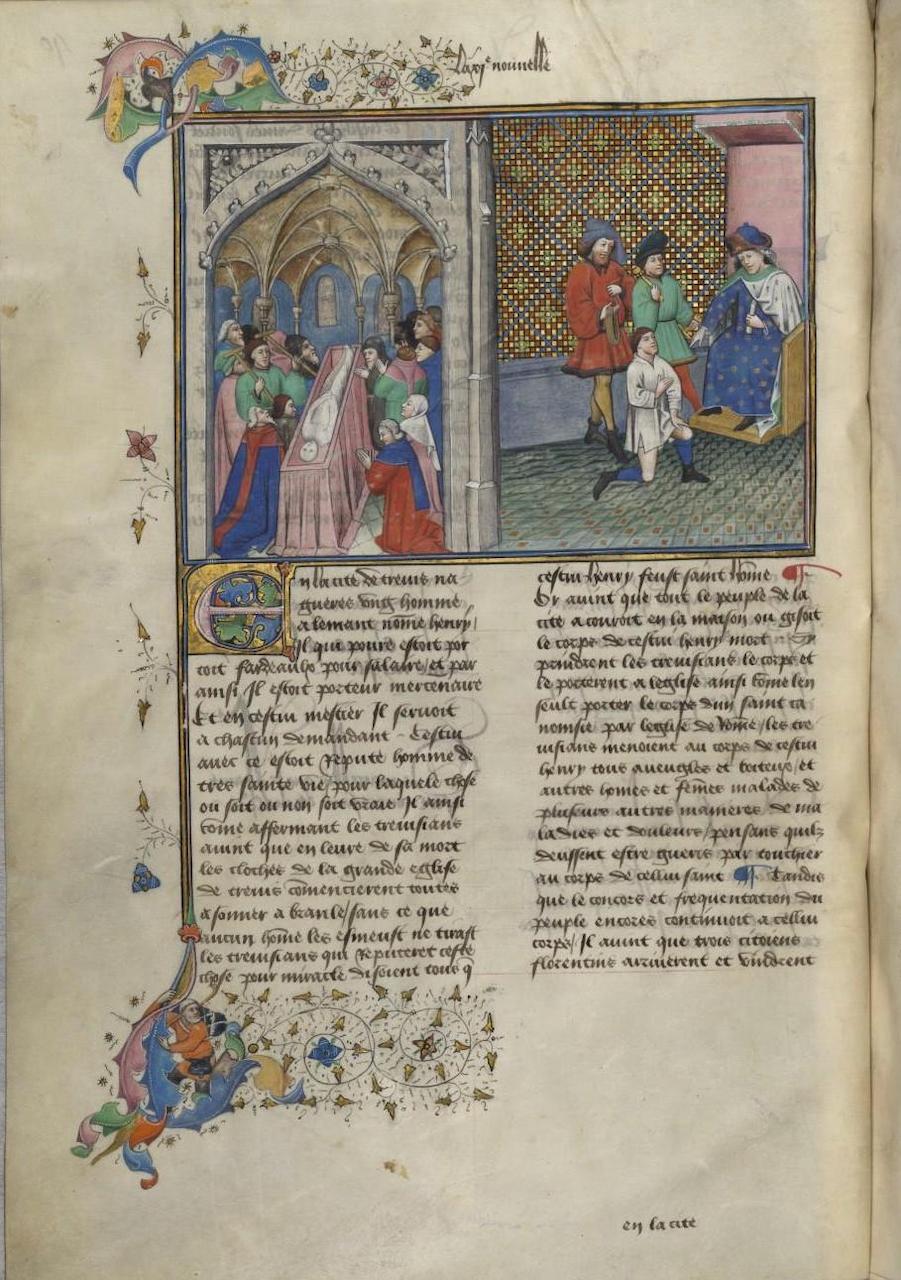 La xi.e nouvelle
En la cite de trevis na
gueres ung homme
alemant nome henry/
Il que povre estoit por
toit fardeaulx pour salaire et par
ainsi Il estoit porteur mercenaire
Et en cestui mestier Il servoit
a chascun demandant Cestui
avec ce estoit Repute homme de
tres sainte vie pour laquele chose
ou soit ou non soit vraie Il ainsi
come affermant les trevisians
avint que en leure de sa mort
les cloches de la grande eglise
de trevis comencierent toutes
a sonner a branle/ sans ce que
aucun home les esmeust ne tirast
les trevisians qui Reputerent ceste
chose pour miracle disoient tous q
cestui henry feust saint home ¶
Or avint que tout le peuple de la
cite acouroit en la maison ou gisoit
le corps de cestui henry mort En
prindrent les trevisians le corps et
le porterent a leglise ainsi come len
seult porter le corps dun saint ca
nonisie par leglise de Rome/ les tre
visians menoient au corps de cestui
henry tous aveugles et boiteux/ et
autres homes et femes malades de
plusieurs autres manieres de ma
ladies et douleurs/ pensans quilz
deussent estre gueris par touchier
au corps de cellui saint ¶ Tandis
que le concors et frequentation du
peuple encores continuoit a cellui
corps/ Il avint que trois citoiens
florentins arriverent et vindrent
en la cite